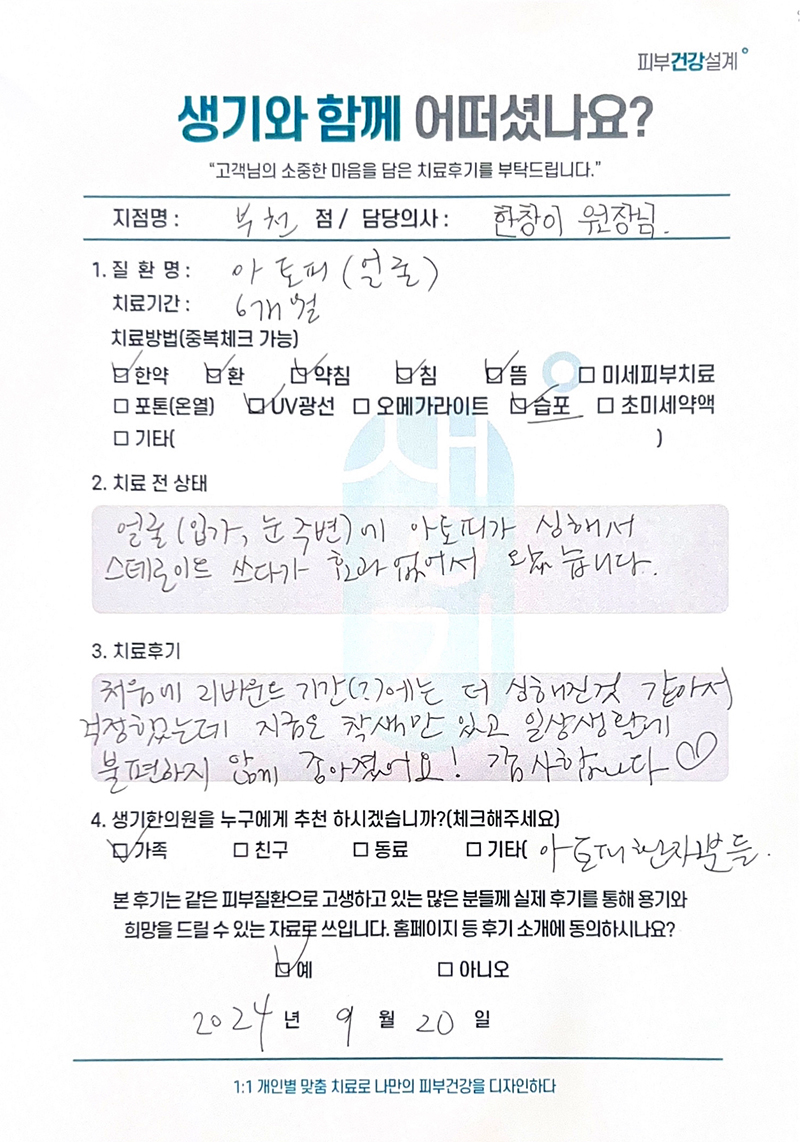 피부건강설계
생기와 함께 어떠셨나요?
“고객님의 소중한 마음을 담은 치료후기를 부탁드립니다.”
지점명 : 부천 점 / 담당의사 : 한창이 원장님.
1. 질 환 명 : 아토피 (얼굴)
치료기간 : 6개월
치료방법(중복체크 가능)
☑ 한약 ☑ 환 ☑ 약침 ☑ 침 ☑ 뜸 ☐ 미세피부치료
☐ 포톤(온열) ☑ UV광선 ☐ 오메가라이트 ☑ 습포 ☐ 초미세약액
☐ 기타( )
2. 치료 전 상태
얼굴 (입가, 눈 주변)에 아토피가 심해서
스테로이드 쓰다가 효과 없어서 왔습니다.
3. 치료후기
처음에 리바운드 기간(?)에는 더 심해진것 같아서
걱정했었는데 지금은 착색만 있고 일상생활에
불편하지 않게 좋아졌어요! 감사합니다 ♡
4. 생기한의원을 누구에게 추천 하시겠습니까?(체크해주세요)
☑ 가족 ☐ 친구 ☐ 동료 ☐ 기타( 아토피 환자분들.
본 후기는 같은 피부질환으로 고생하고 있는 많은 분들께 실제 후기를 통해 용기와
희망을 드릴 수 있는 자료로 쓰입니다. 홈페이지 등 후기 소개에 동의하시나요?
☑ 예 ☐ 아니오
2024 년 9 월 20 일
1:1 개인별 맞춤 치료로 나만의 피부건강을 디자인하다
생기